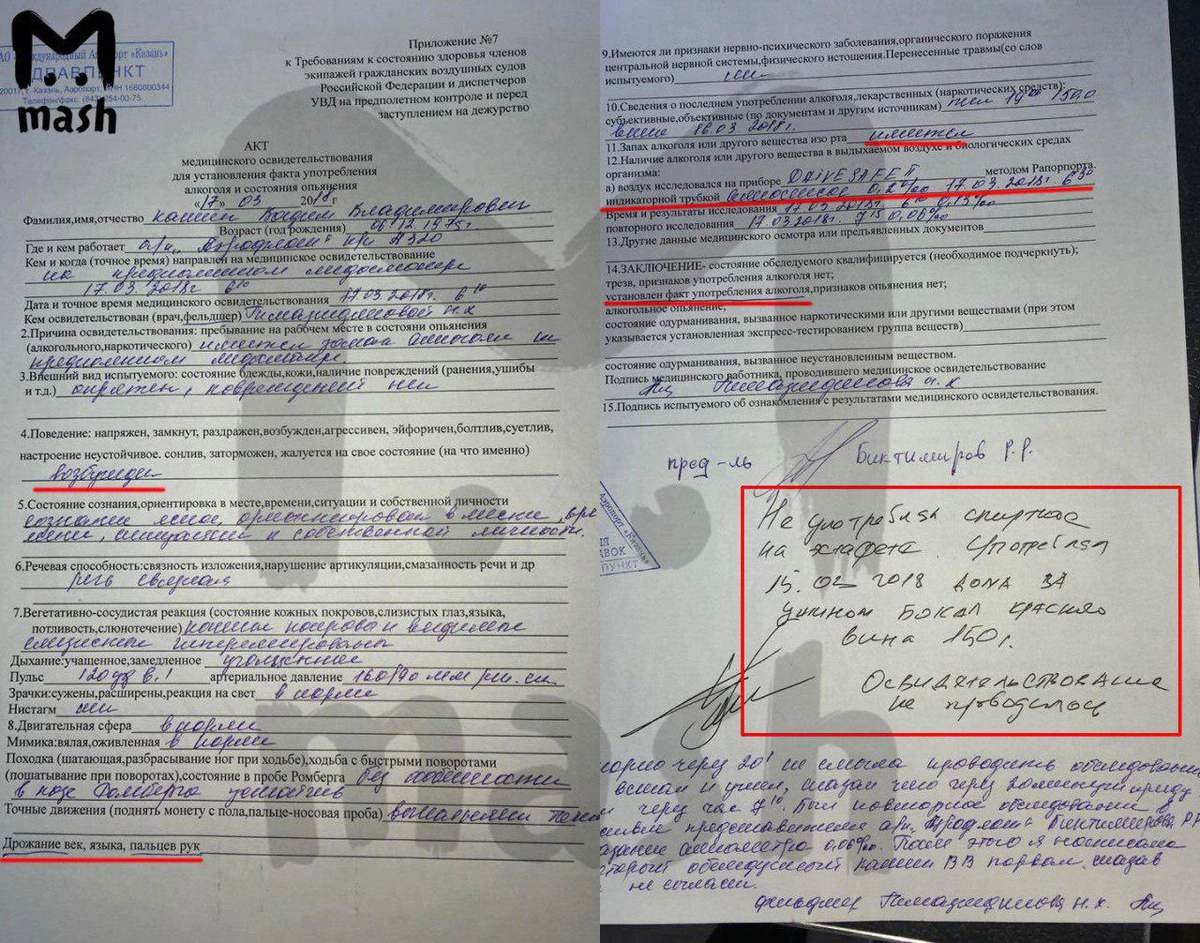 М.
mash
АО «Международный Аэропорт «Казань»
ЗДРАВПУНКТ
г. Казань, Аэропорт, ИНН 1660000344
Телефон/факс: (843) 254-00-75
Приложение №7
к Требованиям к состоянию здоровья членов
экипажей гражданских воздушных судов
Российской Федерации и диспетчеров
УВД на предполетном контроле и перед
заступлением на дежурство
АКТ
медицинского освидетельствования
для установления факта употребления
алкоголя и состояния опьянения
«17» 03 2018 г
Фамилия,имя,отчество Вадим Владимирович
Возраст (год рождения) 06.12.1975г.
Где и кем работает а/к „Аэрофлот" А320
Кем и когда (точное время) направлен на медицинское освидетельствование
на предполетном медосмотре
17.03.2018г 6 10
Дата и точное время медицинского освидетельствования 17.03.2018г. 6 10
Кем освидетельствован (врач,фельдшер) Н.Х
2.Причина освидетельствования: пребывание на рабочем месте в состояни опьянения
(алкогольного,наркотического) имеется запах алкоголя на
предполетном медосмотре
3.Внешний вид испытуемого: состояние одежды,кожи,наличие повреждений (ранения,ушибы
и т.д.) опрятен, повреждений нет
4.Поведение: напряжен, замкнут, раздражен,возбужден,агрессивен, эйфоричен,болтлив,суетлив,
настроение неустойчивое. сонлив, заторможен, жалуется на свое состояние (на что именно)
возбужден
5.Состояние сознания,ориентировка в месте,времени,ситуации и собственной личности
сознание ясное, ориентирован в месте, вре
мени, ситуации и собственной личности.
6.Речевая способность:связность изложения,нарушение артикуляции,смазанность речи и др
речь связная
7.Вегетативно-сосудистая реакция (состояние кожных покровов,слизистых глаз,языка,
потливость,слюнотечение) кожные покровы и видимые
слизистые гиперемированы
Дыхание:учащенное,замедленное учащенное
Пульс 120 уд в 1' артериальное давление 160/90 мм рт. ст.
Зрачки:сужены,расширены,реакция на свет в норме
Нистагм нет
8.Двигательная сфера в норме
Мимика:вялая,оживленная в норме
Походка (шатающая,разбрасывание ног при ходьбе),ходьба с быстрыми поворотами
(пошатывание при поворотах),состояние в пробе Ромберга без особенностей
в позе Ромберга устойчив
Точные движения (поднять монету с пола,пальце-носовая проба) выполняет
Дрожание век, языка, пальцев рук
9.Имеются ли признаки нервно-психического заболевания,органического поражения
центральной нервной системы,физического истощения.Перенесенные травмы(со слов
испытуемого) нет
10.Сведения о последнем употреблении алкоголя,лекарственных (наркотических средств):
субъективные,объективные (по документам и другим источникам) 19 00 150,0
вина 16.03 2018г.
11.Запах алкоголя или другого вещества изо рта имеется
12.Наличие алкоголя или другого вещества в выдыхаемом воздухе и биологических средах
организма:
а) воздух исследовался на приборе DRIVESAFE II методом Рапопорта.
индикаторной трубкой 17.03.2018г. 6 30
Время и результаты исследования 17.03.2018г. 6 10
повторного исследования 17.03.2018г. 7 15 0,06‰
13.Другие данные медицинского осмотра или предъявленных документов
14.ЗАКЛЮЧЕНИЕ- состояние обследуемого квалифицируется (необходимое подчеркнуть);
трезв, признаков употребления алкоголя нет;
установлен факт употребления алкоголя,признаков опьянения нет;
алкогольное опьянение;
состояние одурманивания, вызванное наркотическими или другими веществами (при этом
указывается установленная экспресс-тестированием группа веществ)
состояние одурманивания, вызванное неустановленным веществом.
Подпись медицинского работника, проводившего медицинское освидетельствование
Н.Х
15.Подпись испытуемого об ознакомления с результатами медицинского освидетельствования.
пред-ль Биктимиров Р.Р.
Не употреблял спиртное
на эстафете. Употреблял
15.03 2018 дома за
ужином бокал красного
вина 150г.
Освидетельствование
не проводилось
через 20' не смогла проводить обследование
встал и ушел, сказал что через 20 минут приду
через час 7 10. Был повторное обследование в
представителя а/к „Аэрофлот" Биктимирова Р.Р
0,06‰. После этого я написала
обследуемый В.В порвал, сказав
не согласен.
фельдшер Н.Х.
mash